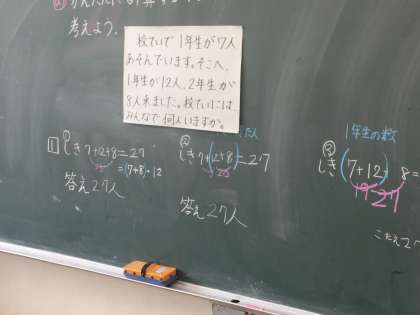 かんたんに計算する
考えよう.
校ていで1年生が7人
あそんでいます。そこへ、
1年生が12人、2年生が
8人来ました。校ていには、
みんなで何人いますか。
1 ① しき 7+12+8=27
=(7+8)+12
答え27人
② しき 7+(12+8)=27
20
答え27人
1年生の数
③ しき (7+12)+8=
19 27
こたえ2